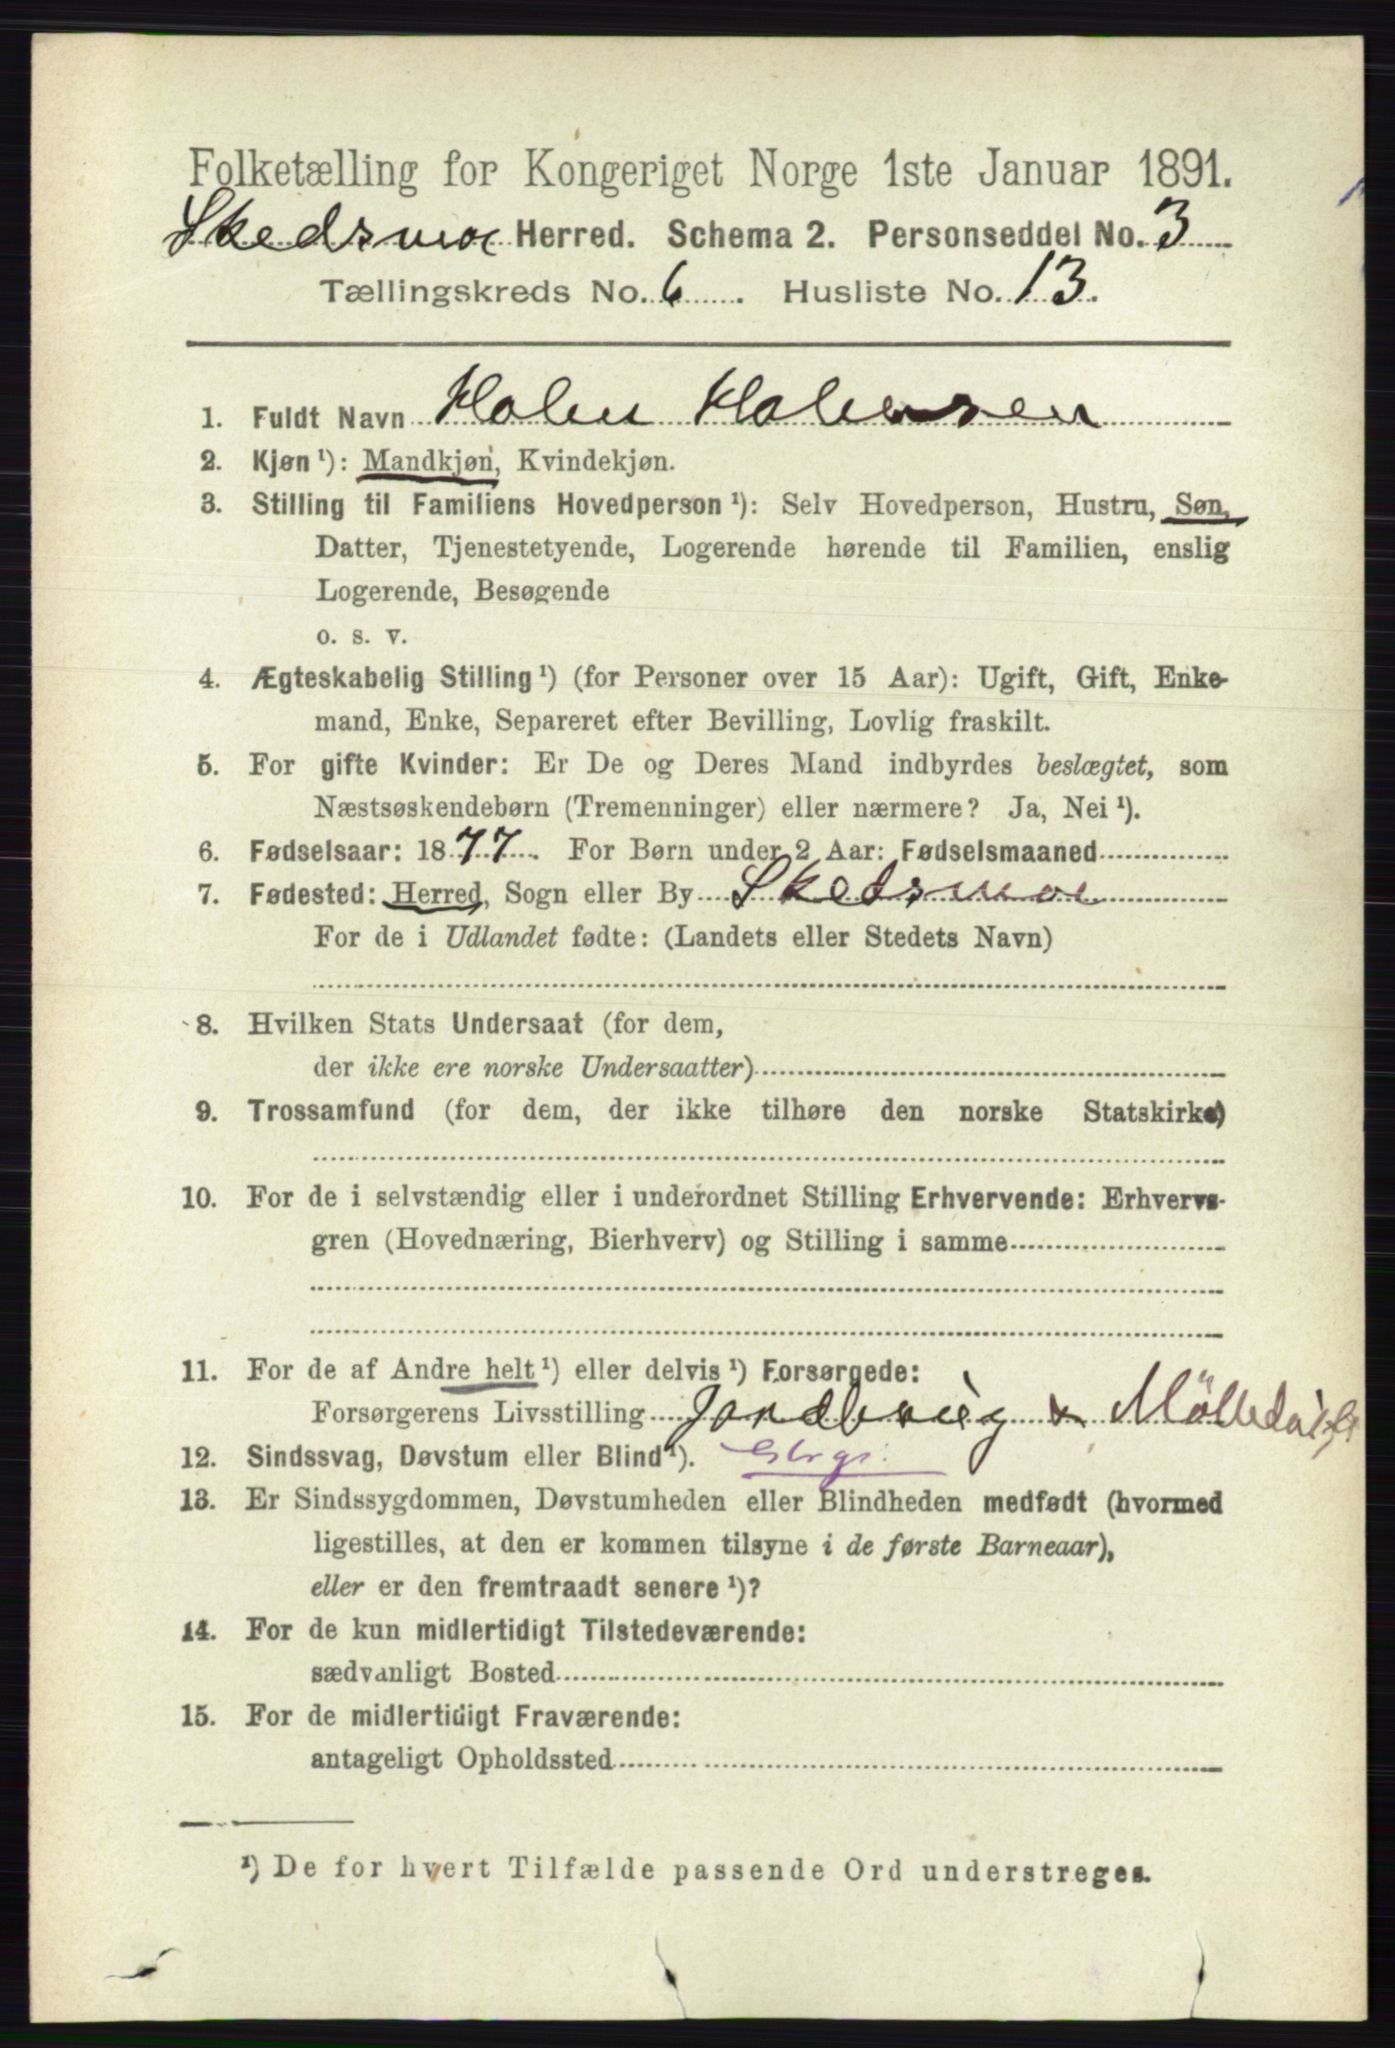 Folketælling for Kongeriget Norge 1ste Januar 1891.
Skedsmoe Herred. Schema 2. Personseddel No. 3
Tællingskreds No. 6. Husliste No. 13.
1. Fuldt Navn Halvor Halvorsen
2. Kjøn ¹): Mandkjøn, Kvindekjøn.
3. Stilling til Familiens Hovedperson ¹): Selv Hovedperson, Hustru, Søn,
Datter, Tjenestetyende, Logerende hørende til Familien, enslig
Logerende, Besøgende
o. s. v.
4. Ægteskabelig Stilling ¹) (for Personer over 15 Aar): Ugift, Gift, Enke-
mand, Enke, Separeret efter Bevilling, Lovlig fraskilt.
5. For gifte Kvinder: Er De og Deres Mand indbyrdes beslægtet, som
Næstsøskendebørn (Tremenninger) eller nærmere? Ja, Nei ¹).
6. Fødselsaar: 1877. For Børn under 2 Aar: Fødselsmaaned
7. Fødested: Herred, Sogn eller By Skedsmoe
For de i Udlandet fødte: (Landets eller Stedets Navn)
8. Hvilken Stats Undersaat (for dem,
der ikke ere norske Undersaatter)
9. Trossamfund (for dem, der ikke tilhøre den norske Statskirke)
10. For de i selvstændig eller i underordnet Stilling Erhvervende: Erhvervs-
gren (Hovednæring, Bierhverv) og Stilling i samme
11. For de af Andre helt ¹) eller delvis ¹) Forsørgede:
Forsørgerens Livsstilling Jordbrug & Mölledrift
12. Sindssvag, Døvstum eller Blind ¹).
13. Er Sindssygdommen, Døvstumheden eller Blindheden medfødt (hvormed
ligestilles, at den er kommen tilsyne i de første Barneaar),
eller er den fremtraadt senere ¹)?
14. For de kun midlertidigt Tilstedeværende:
sædvanligt Bosted
15. For de midlertidigt Fraværende:
antageligt Opholdssted
¹) De for hvert Tilfælde passende Ord understreges.